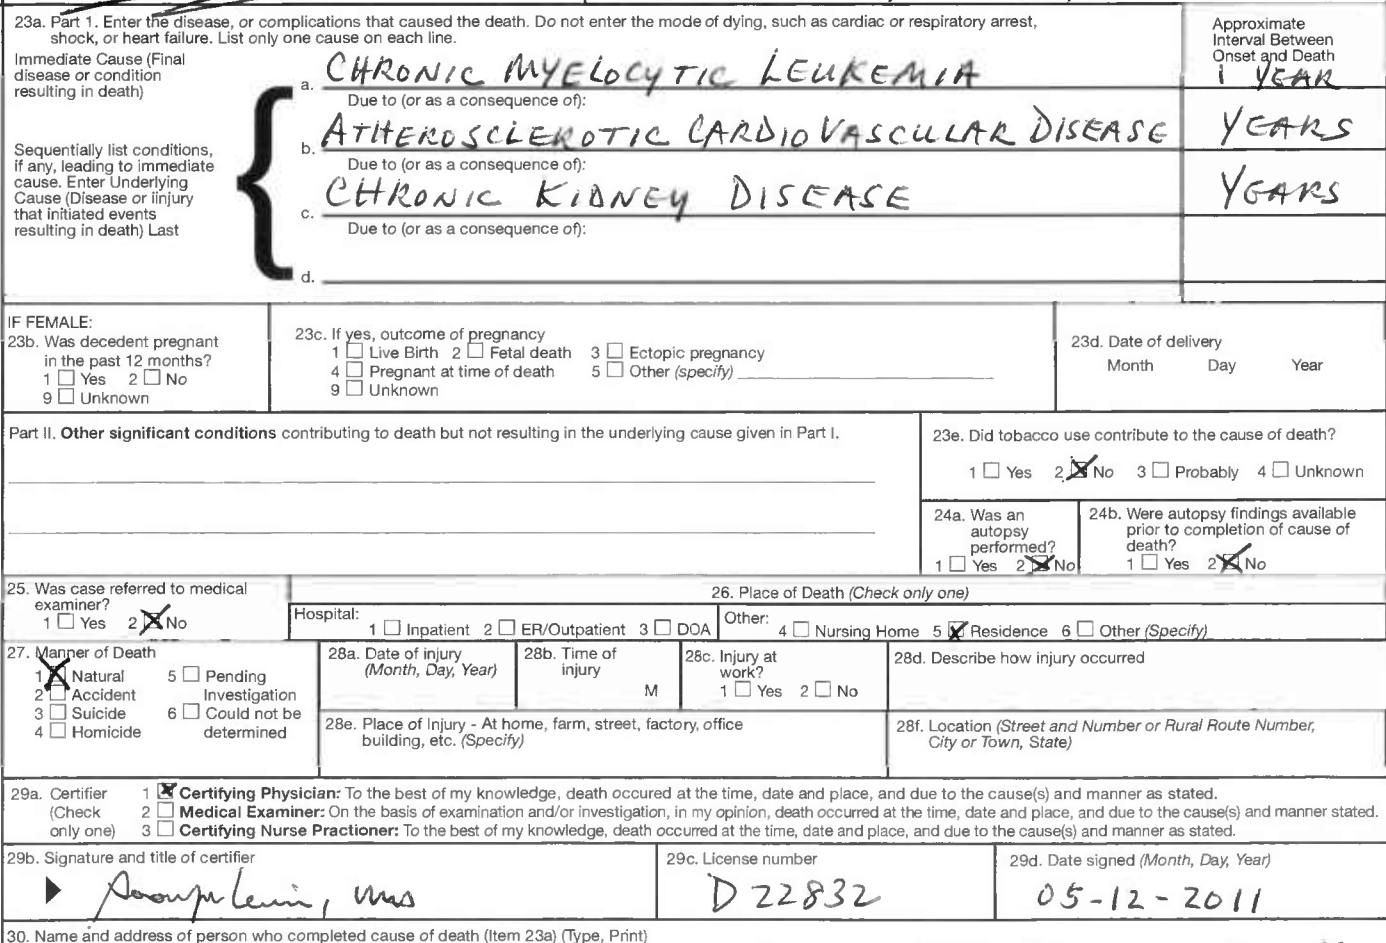 23a. Part 1. Enter the disease, or complications that caused the death. Do not enter the mode of dying, such as cardiac or respiratory arrest,
shock, or heart failure. List only one cause on each line.
Approximate
Interval Between
Onset and Death
Immediate Cause (Final
disease or condition
resulting in death)
a. CHRONIC MYELOCYTIC LEUKEMIA 1 YEAR
Due to (or as a consequence of):
Sequentially list conditions,
if any, leading to immediate
cause. Enter Underlying
Cause (Disease or iinjury
that initiated events
resulting in death) Last
b. ATHEROSCLEROTIC CARDIOVASCULAR DISEASE YEARS
Due to (or as a consequence of):
c. CHRONIC KIDNEY DISEASE YEARS
Due to (or as a consequence of):
d.
IF FEMALE:
23b. Was decedent pregnant
in the past 12 months?
1 Yes 2 No
9 Unknown
23c. If yes, outcome of pregnancy
1 Live Birth 2 Fetal death 3 Ectopic pregnancy
4 Pregnant at time of death 5 Other (specify)
9 Unknown
23d. Date of delivery
Month Day Year
Part II. Other significant conditions contributing to death but not resulting in the underlying cause given in Part I.
23e. Did tobacco use contribute to the cause of death?
1 Yes 2 No 3 Probably 4 Unknown
24a. Was an
autopsy
performed?
1 Yes 2 No
24b. Were autopsy findings available
prior to completion of cause of
death?
1 Yes 2 No
25. Was case referred to medical
examiner?
1 Yes 2 No
26. Place of Death (Check only one)
Hospital: 1 Inpatient 2 ER/Outpatient 3 DOA
Other: 4 Nursing Home 5 Residence 6 Other (Specify)
27. Manner of Death
1 Natural 5 Pending
2 Accident Investigation
3 Suicide 6 Could not be
4 Homicide determined
28a. Date of injury
(Month, Day, Year)
28b. Time of
injury
M
28c. Injury at
work?
1 Yes 2 No
28d. Describe how injury occurred
28e. Place of Injury - At home, farm, street, factory, office
building, etc. (Specify)
28f. Location (Street and Number or Rural Route Number,
City or Town, State)
29a. Certifier
(Check
only one)
1 Certifying Physician: To the best of my knowledge, death occured at the time, date and place, and due to the cause(s) and manner as stated.
2 Medical Examiner: On the basis of examination and/or investigation, in my opinion, death occurred at the time, date and place, and due to the cause(s) and manner stated.
3 Certifying Nurse Practioner: To the best of my knowledge, death occurred at the time, date and place, and due to the cause(s) and manner as stated.
29b. Signature and title of certifier
29c. License number
D 22832
29d. Date signed (Month, Day, Year)
05-12-2011
30. Name and address of person who completed cause of death (Item 23a) (Type, Print)